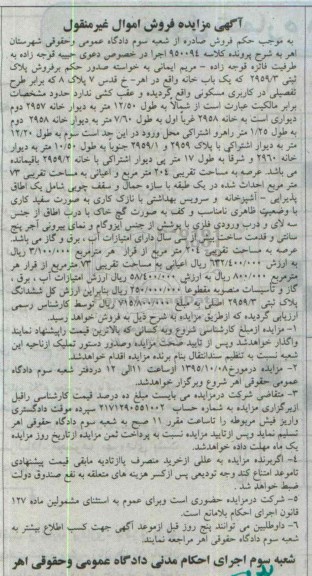 آگهی مزایده فروش اموال غیرمنقول
به موجب حکم فروش صادره از شعبه سوم دادگاه عمومی وحقوقی شهرستان
اهر به شرح پرونده کلاسه ۹۵۰۰۹۴ اجرا درخصوص دعوی حبیبه قوجه زاده به
طرفیت فائزه قوجه زاده - مریم ایمانی به خواسته صدور حکم برفروش پلاک
ثبتی ۲۹۵۹/۳ که یک باب خانه واقع در اهر- خ قدس ۷ پلاک ۸ که برابر طرح
تفصیلی در کاربری مسکونی واقع گردیده و عقب کشی ندارد حدود مشخصات
برابر مالکیت عبارت است از شمالاً به طول ۱۲/۵۰ متر به دیوار خانه ۲۹۵۷ دوم
دیواری است به خانه ۲۹۵۸ غرباً اول به طول ۷/۶۰ متر به دیوار خانه ۲۹۵۸ دوم
به طول ۱/۲۵ متر راهرو اشتراکی محل ورود در این حد است سوم به طول ۱۲/۲۰
متر به دیوار اشتراکی با پلاک ۲۹۵۹ و ۲۹۵۹/۱ جنوبا به طول ۱۰/۵۰ متر به دیوار
خانه ۲۹۶۰ و شرقا به طول ۱۷ متر پی دیوار اشتراکی با خانه ۲۹۵۹/۲ باقیمانده
می باشد. عرصه به مساحت تقریبی ۲۰۴ متر مربع و اعیانی به مساحت تقریبی ۷۳
متر مربع احداث شده در یک طبقه با سازه حمال و سقف چوبی شامل یک اطاق
پذیرایی - آشپزخانه و سرویس بهداشتی با نازک کاری به صورت سفید کاری
با وضعیت ظاهری نامناسب و کفت به صورت گچ خاک با درب اطاق از جنس
سه لای و درب ورودی فلزی با پوشش از جنس آیزوگام و نمای بیرونی آجر پنج
سانتی و قدمت ساخت بیش از سی سال دارای امتیازات آب ، برق و گاز می باشد.
عرصه به مساحت تقریبی ۲۰۴ متر مربع از قرار هر مترمربع ۳/۱۰۰/۰۰۰ ریال
به ارزش ۶۳۲/۴۰۰/۰۰۰ ریال اعیانی به مساحت تقریبی ۷۳ مترمربع از قرار هر
مترمربع ۸۰۰/۰۰۰ ریال به ارزش ۵۸/۴۰۰/۰۰۰ ریال ارزش امتیازات آب ، برق ،
گاز و تأسیسات منصوبه مقطوعا ۲۵/۰۰۰/۰۰۰ ریال بنابراین ارزش کل ششدانگ
پلاک ثبتی ۲۹۵۹/۳ اصلی به مبلغ ۷۱۵/۸۰۰/۰۰۰ ریال توسط کارشناس رسمی
ارزیابی گردیده که ازطریق مزایده به شرح ذیل به فروش خواهد رسید.
۱- مزایده ازمبلغ کارشناسی شروع وبه کسانی که بالاترین قیمت راپیشنهاد نمایند
واگذار خواهدشد وپس از تایید صحت مزایده وصدور دستور تملیک ازناحیه این
شعبه نسبت به تنظیم سندانتقال بنام برنده مزایده اقدام خواهدشد.
۲- مزایده درمورخ ۱۳۹۵/۱۰/۰۸ ازساعت ۱۱الی ۱۲ دردفتر شعبه سوم دادگاه
عمومی حقوقی اهر شروع وبرگزار خواهدشد.
۳- متقاضی شرکت درمزایده می بایست مبلغ ده درصد قیمت کارشناسی راقبل
ازبرگزاری مزایده به شماره حساب ۲۱۷۱۲۹۰۵۵۱۰۰۲ سپرده موقت دادگستری
واریز فیش مربوطه را تاساعت مقرر ۱۱ صبح به شعبه سوم دادگاه حقوقی اهر
تسلیم نماید وپس ازتایید مزایده نسبت به پرداخت ثمن مزایده ازتاریخ روز مزایده
یک ماه مهلت داده خواهدشد.
۴- اگربرنده مزایده به عللی ازخرید منصرف یاازتادیه مابقی قیمت پیشنهادی
تاموعد امتناع کند وجه تودیعی پس ازکسر هزینه های متعلقه به نفع صندوق دولت
ضبط خواهد شد .
۵- شرکت درمزایده حضوری است وبرای عموم به استثنای مشمولین ماده ۱۲۷
قانون اجرای احکام بلامانع است.
۶- داوطلبین می توانند پنج روز قبل ازموعد آگهی جهت کسب اطلاع بیشتر به
شعبه سوم دادگاه حقوقی اهر مراجعه نمایند.
شعبه سوم اجرای احکام مدنی دادگاه عمومی وحقوقی اهر